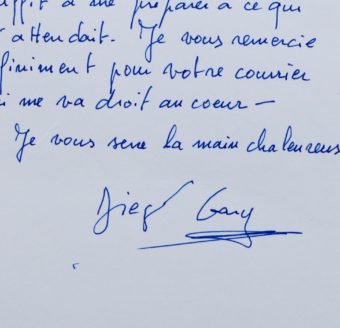 suffit à me préparer à ce qui
t'attendait. Je vous remercie
finiment pour votre courrier
i me va droit au coeur —
Je vous serre la main chaleureus
Diego Gary